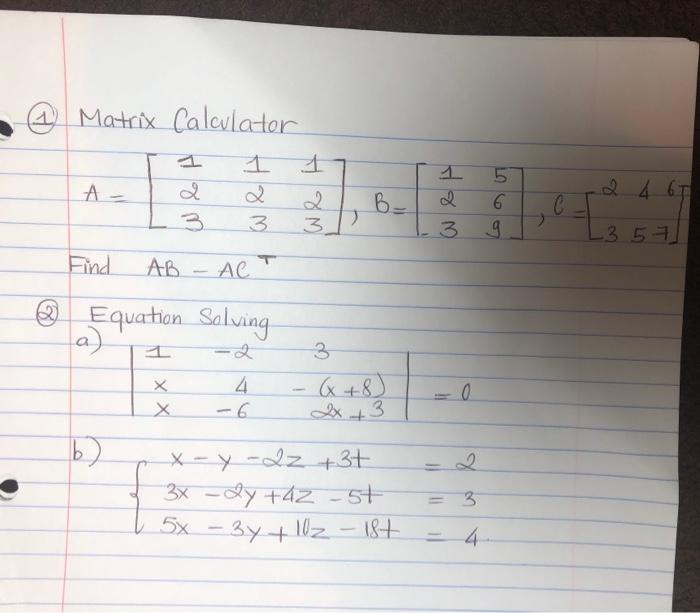 ① Matrix Calculator
A = [1 1 1; 2 2 2; 3 3 3], B = [1 5; 2 6; 3 9], C = [2 4 6; 3 5 7]
Find AB - AC^T
② Equation Solving
a)
| 1 -2 3 |
| x 4 -(x+8) | = 0
| x -6 2x+3 |
b)
{ x - y - 2z + 3t = 2
3x - 2y + 4z - 5t = 3
5x - 3y + 10z - 18t = 4.